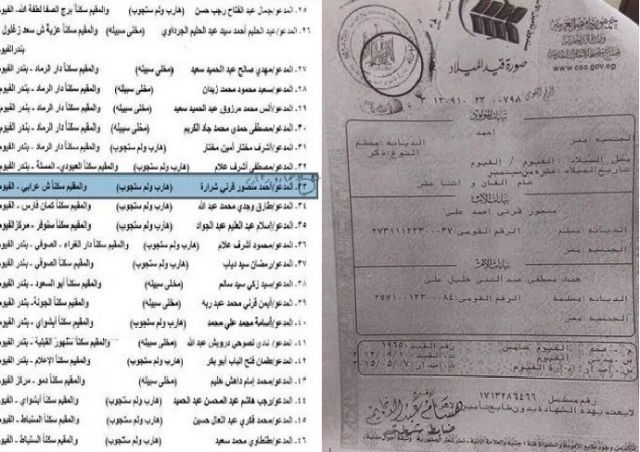 ٢٥- المدعو/جمال عبد الفتاح رجب حسن (هارب ولم ستجوب) والمقيم سكناً برج الصفا لطفة الله- الفيوم
٢٦- المدعو/عبد الحليم أحمد سيد عبد الحليم الجرداوي (مخلى سبيله) والمقيم سكناً عزبة ش سعد زغلول
بندر الفيوم
٢٧- المدعو/مهدي صالح عبد الحميد سعيد (هارب ولم ستجوب) والمقيم سكناً دار الرماد - بندر الفيوم
٢٨- المدعو/سعيد محمود محمد زيدان (مخلى سبيله) والمقيم سكناً دار الرماد - بندر الفيوم
٢٩- المدعو/أنس محمد مرزوق عبد الحميد سعيد (مخلى سبيله) والمقيم سكناً دار الرماد - بندر الفيوم
٣٠- المدعو/مصطفى حمدي محمد جاد الكريم (مخلى سبيله) والمقيم سكناً دار الرماد - بندر الفيوم
٣١- المدعو/أشرف مختار أمين مختار (مخلى سبيله) والمقيم سكناً دار الرماد - بندر الفيوم
٣٢- المدعو/مصطفى أشرف علام (مخلى سبيله) والمقيم سكناً العبودي- المسلة - بندر الفيوم
٣٣- المدعو/أحمد منصور قرني شرارة (هارب ولم ستجوب) والمقيم سكناً ش عرابي - الفيوم
٣٤- المدعو/طارق وجدي محمد عبد الله (هارب ولم ستجوب) والمقيم سكناً كمان فارس - الفيوم
٣٥- المدعو/إسلام عبد العليم عبد الجواد (هارب ولم ستجوب) والمقيم سكناً سنوفر - مركز الفيوم
٣٦- المدعو/محمود أشرف علام (هارب ولم ستجوب) والمقيم سكناً دار الغراء - الصوفي - بندر الفيوم
٣٧- المدعو/رمضان سيد دياب (هارب ولم ستجوب) والمقيم سكناً الصوفي - بندر الفيوم
٣٨- المدعو/سيد زكي سيد سالم (مخلى سبيله) والمقيم سكناً أبو السعود - بندر الفيوم
٣٩- المدعو/أيمن قرني محمد عبد ربه (مخلى سبيله) والمقيم سكناً الجونة- بندر الفيوم
٤٠- المدعو/أسامة محمد علي محمد (هارب ولم ستجوب) والمقيم سكناً أبشواي - بندر الفيوم
٤١- المدعو/ندى نصوحي درويش عبد الله (مخلى سبيله) والمقيم سكناً القبلية - بندر الفيوم
٤٢- المدعو/طمان فتح الباب أبو بكر (هارب ولم ستجوب) والمقيم سكناً الإعلام - بندر الفيوم
٤٣- المدعو/محمد إمام داهش هليم (مخلى سبيله) والمقيم سكناً دمو - مركز الفيوم
٤٤- المدعو/رجب هاشم عبد المحسن عبد الحميد (هارب ولم ستجوب) والمقيم سكناً أبشواي - الفيوم
٤٥- المدعو/محمد فكري عبد العال حسين (هارب ولم ستجوب) والمقيم سكناً السنباط - الفيوم
٤٦- المدعو/طنطاوي محمد سعيد (هارب ولم ستجوب) والمقيم سكناً السنباط - الفيوم
جمهورية مصر العربية
وزارة الداخلية
www.cso.gov.eg
صورة قيد الميلاد
الرقم القومى ٣ ١٢٠٩١٠ ٢٣ ٠٠٧٩٨
بيانات المولود
احمد
الجنسيه مصر الديانه مسلم
النوع ذكر
محل الميلاد الفيوم / الفيوم
تاريخ الميلاد عشره من سبتمبر
عام الفان و اثنا عشر
بيانات الأب
منصور قرنى احمد على
الديانه مسلم الرقم القومى ٢٧٣١١١٢٢٣٠٠٠٣٧
الجنسيه مصر
بيانات الأم
هند مصطفى عبد النبى خليل على
الديانه مسلمة الرقم القومى ٢٧٧١٠٠١٢٣٠٠٠٨٤
الجنسيه مصر
الفيوم خامس رقم القيد ١٩٦٥
الفيوم ٢٠١٢/٠٩/١٠
الفيوم ٢٠١٥/٠٥/٠٧
رقم مسلسل ١٧١٣٢٨٦٤٦٦
لا يعتد بهذه الشهاده بدون طابع تأمين